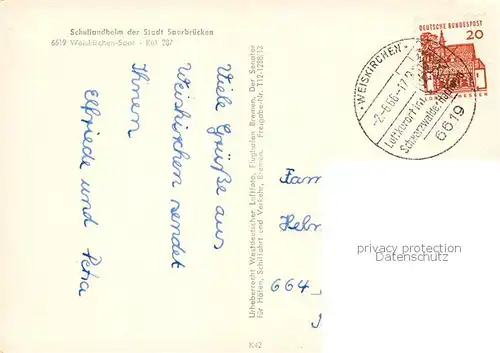 Schullandheim der Stadt Saarbrücken
6619 Weiskirchen-Saar - Ruf 287
Viele Grüße aus
Weiskirchen sendet
Ihnen
Elfriede und Petra
Urheberrecht Westdeutscher Luftfoto, Flughafen Bremen, Der Senator
für Häfen, Schiffahrt und Verkehr, Bremen. Freigabe-Nr.
K42
DEUTSCHE BUNDESPOST
20
WEISKIRCHEN
-2.-6.66-17
Luftkurort im
Schwarzwälder
6619
Fam
664
privacy protection
Datenschutz